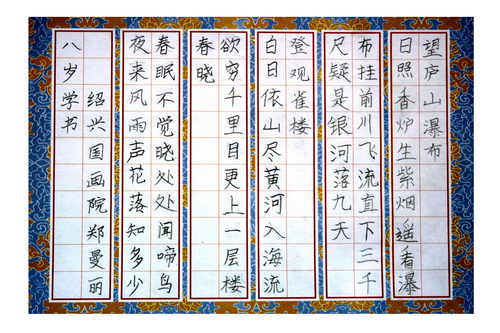 望庐山瀑布
日照香炉生紫烟遥看瀑
布挂前川飞流直下三千
尺疑是银河落九天
登观雀楼
白日依山尽黄河入海流
欲穷千里目更上一层楼
春晓
春眠不觉晓处处闻啼鸟
夜来风雨声花落知多少
绍兴国画院郑曼丽
八岁学书